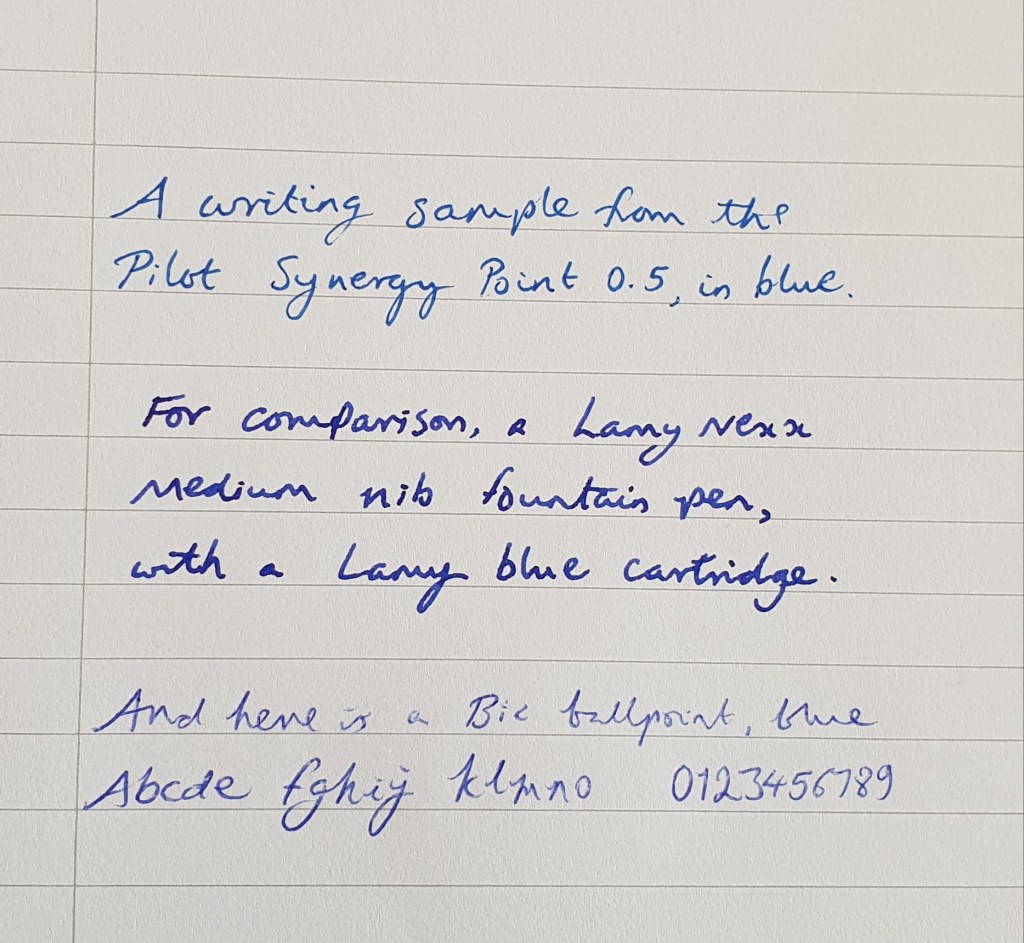 A writing sample from the
Pilot Synergy Point 0.5, in blue.
For comparison, a Lamy Nexx
Medium nib fountain pen,
with a Lamy blue cartridge.
And here is a Bic ballpoint, blue
Abcde fghij klmno 0123456789